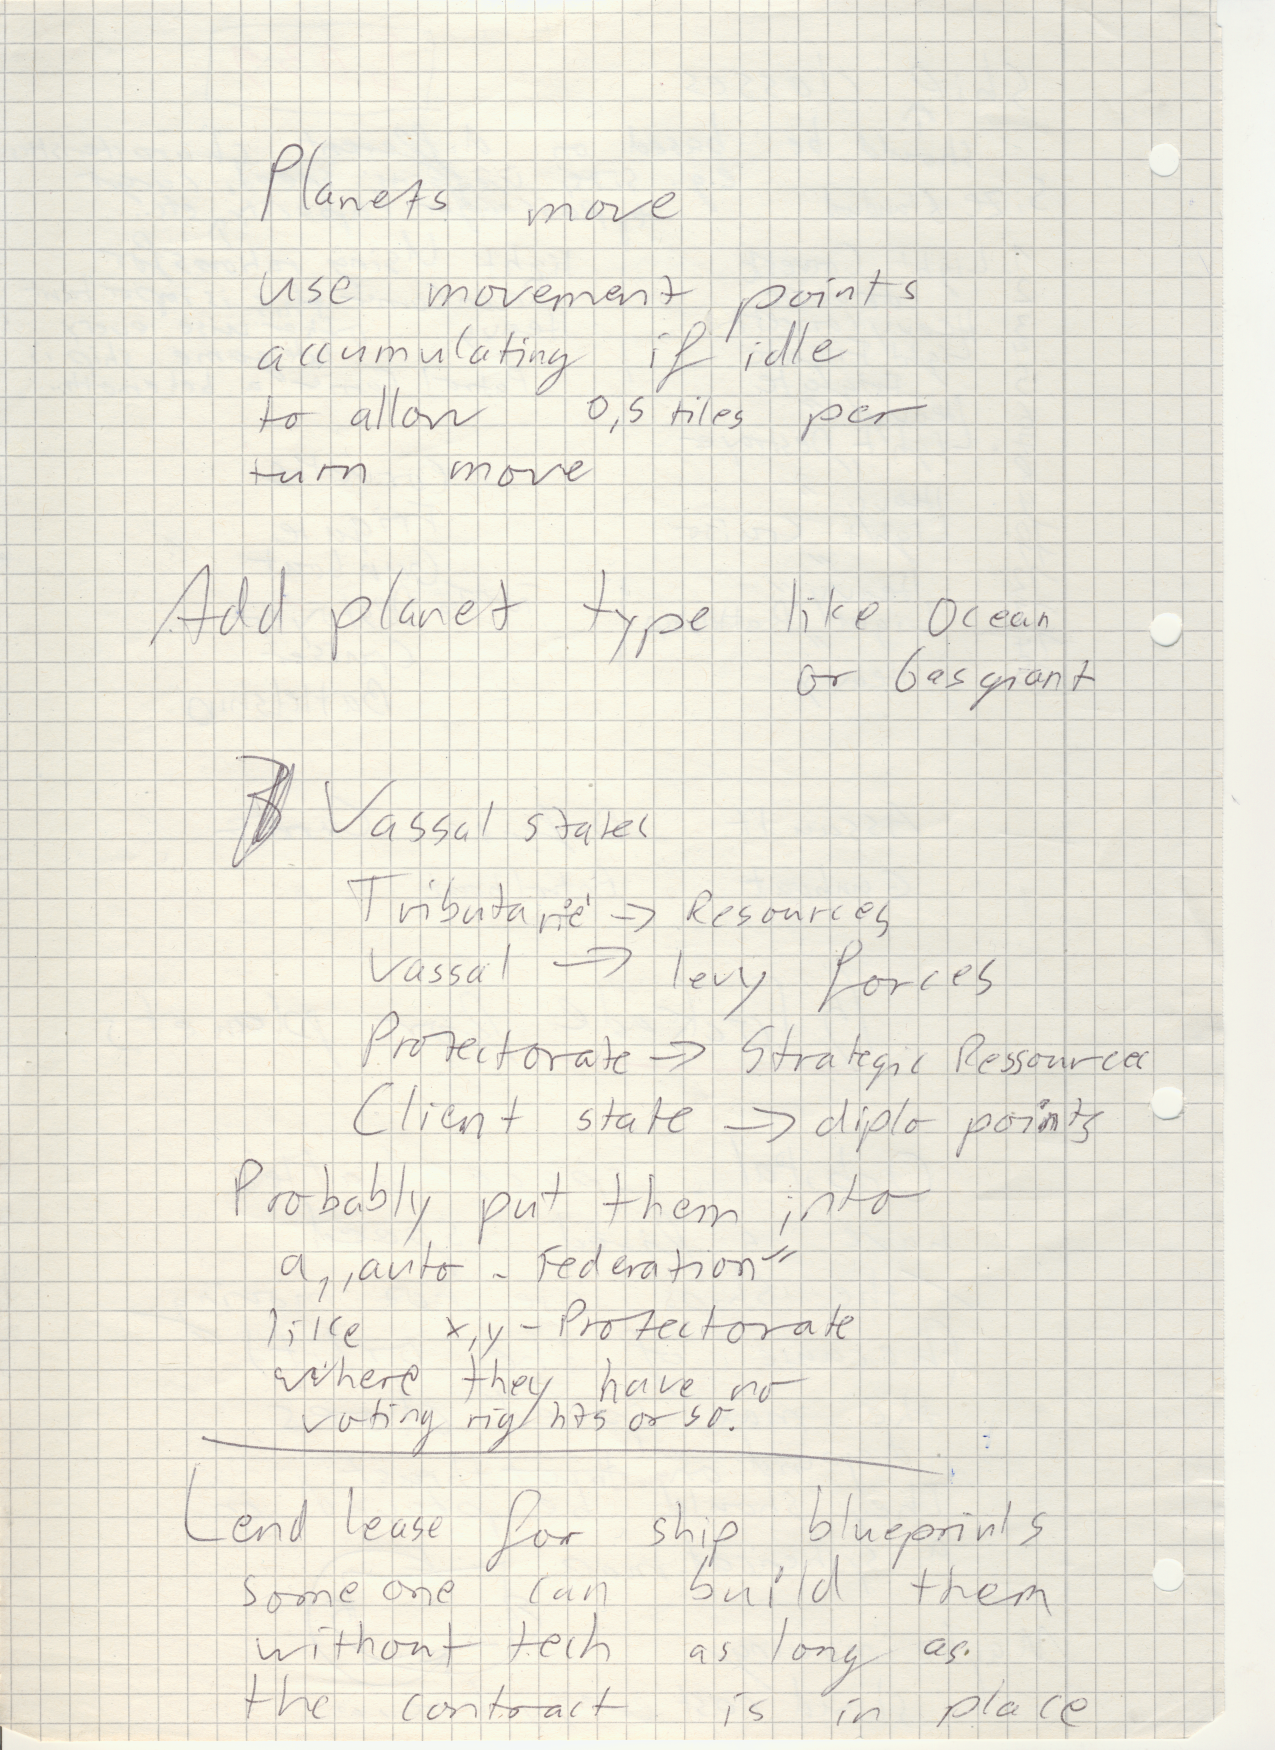 Planets move
use movement points
accumulating if idle
to allow 0,5 tiles per
turn move
Add planet type like Ocean
or Gasgiant
Vassal states
Tributarie -> Resources
Vassal -> levy forces
Protectorate -> Strategic Ressources
Client state -> diplo points
Probably put them into
a „auto - Federation"
like x,y - Protectorate
where they have no
voting rights or so.
Lend lease for ship blueprints
someone can build them
without tech as long as
the contract is in place